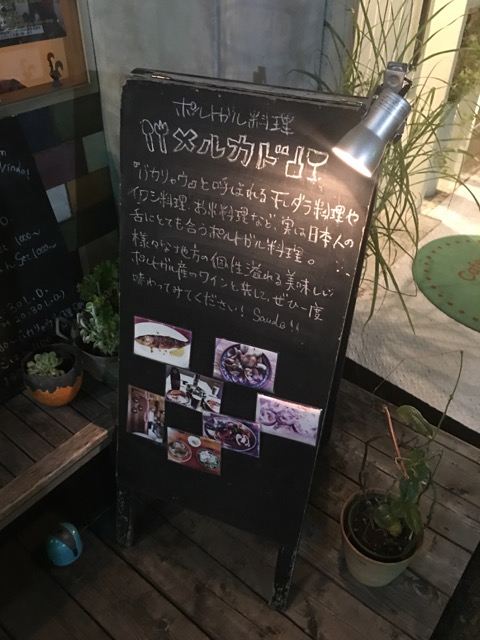 ポルトガル料理
メルカド
"バカリャウ"と呼ばれる干しダラ料理や
イワシ料理、お米料理など、実は日本人の
舌にとても合うポルトガル料理。
様々な地方の個性溢れる美味しい
ポルトガル産のワインと共に、ぜひ一度
味わってみてください! Saude!!